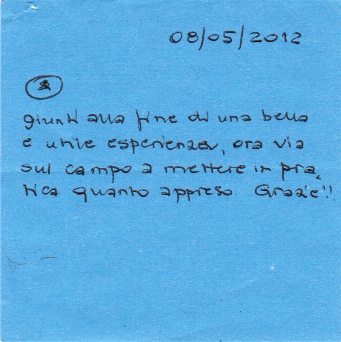 08/05/2012
giunti alla fine di una bella
e utile esperienza, ora via
sul campo a mettere in pra,
tica quanto appreso. Grazie!!